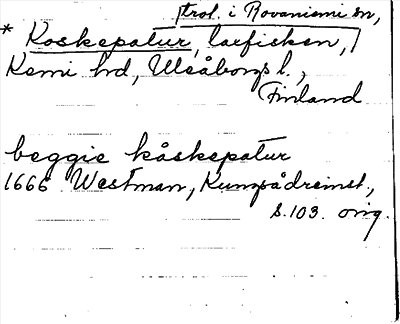 trol. i Rovaniemi sn,
* Koskepatur, laxfisken,
Kemi hd, Uleåborgs l.,
Finland
beggie kåskepatur
1666 Westman, Kungsådreinst.,
s. 103. orig.